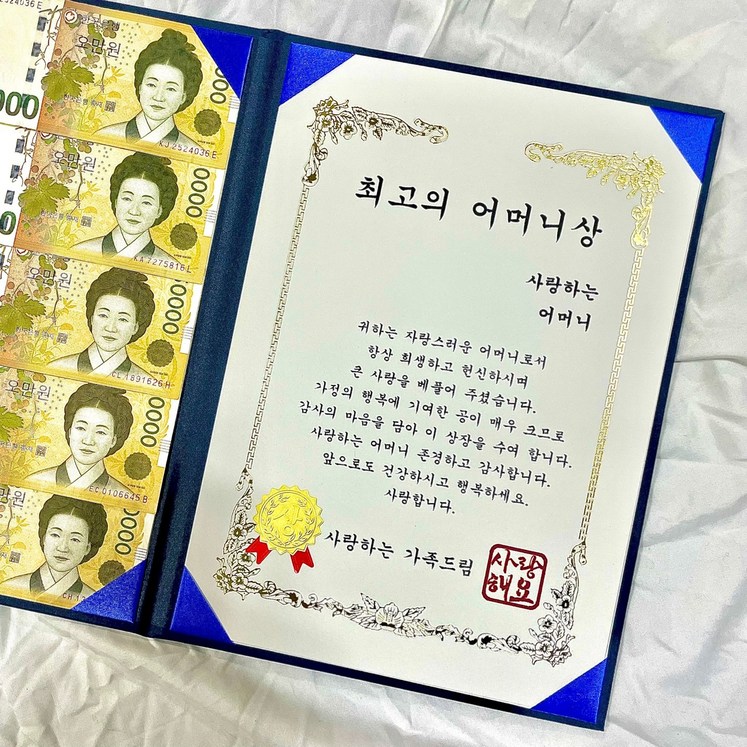 최고의 어머니상
사랑하는
어머니
귀하는 자랑스러운 어머니로서
항상 희생하고 헌신하시며
큰 사랑을 베풀어 주셨습니다.
가정의 행복에 기여한 공이 매우 크므로
감사의 마음을 담아 이 상장을 수여 합니다.
사랑하는 어머니 존경하고 감사합니다.
앞으로도 건강하시고 행복하세요.
사랑합니다.
사랑하는 가족드림
사랑
해요
한국은행
오만원
KJ 2524036 E
오만원
KA 7275816 L
오만원
CL 1891626 H
오만원
EC 0106645 B
오만원